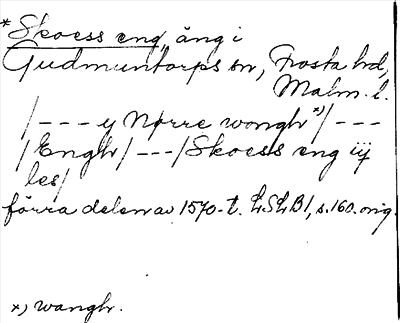 *Skoess eng, äng i
Gudmuntorps sn, Frosta hd,
Malm. l.
/--- y Nørre wongh *)/---
/Engh/---/Skoess eng iij
les/
förra delen av 1570-t. LSLB1, s. 160. orig.
*) wangh.